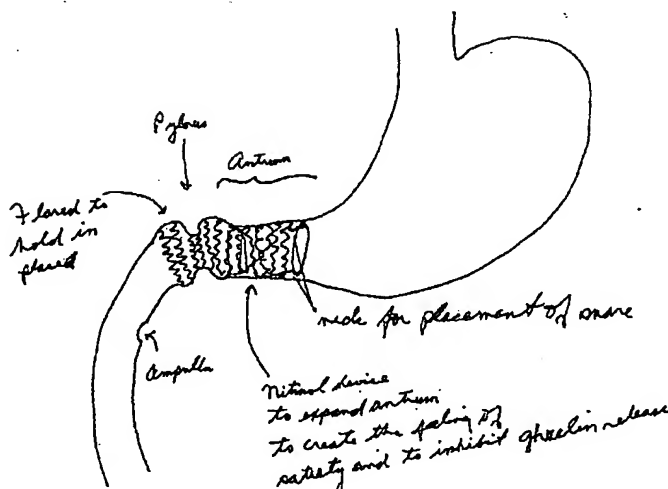 Pylorus
Antrum
Flared to
hold in
placed
Ampulla
nidi for placement of snare
Nitinol device
to expand antrum
to create the feeling of
satiety and to inhibit ghrelin release